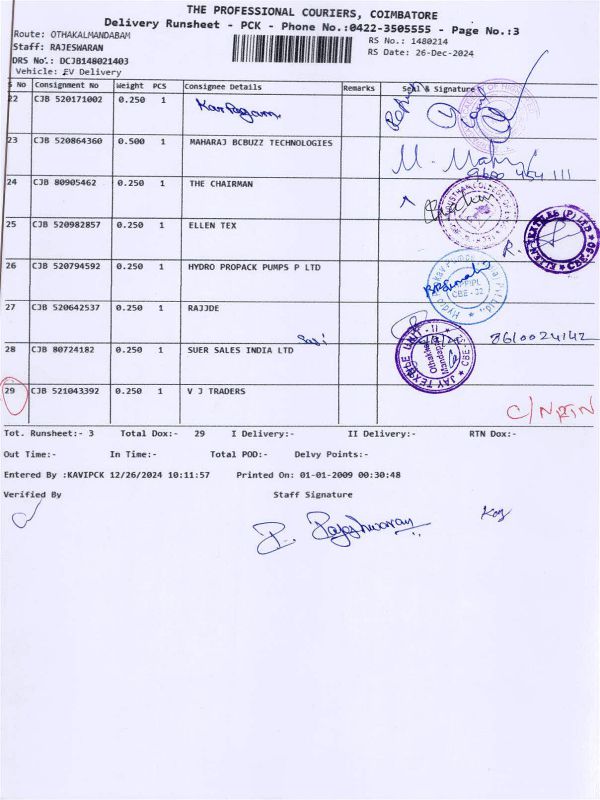 THE PROFESSIONAL COURIERS, COIMBATORE
Delivery Runsheet - PCK - Phone No.:0422-3505555 - Page No.:3
Route: OTHAKALMANDABAM
RS No.: 1480214
Staff: RAJESWARAN
RS Date: 26-Dec-2024
DRS No.: DCJB148021403
Vehicle: EV Delivery
S No Consignment No Weight PCS Consignee Details Remarks Seal & Signature
22 CJB 520171002 0.250 1 Karpagam
23 CJB 520864360 0.500 1 MAHARAJ BCBUZZ TECHNOLOGIES
24 CJB 80905462 0.250 1 THE CHAIRMAN
25 CJB 520982857 0.250 1 ELLEN TEX
ELLEN TEXTILES (P) LTD CBE-50
26 CJB 520794592 0.250 1 HYDRO PROPACK PUMPS P LTD
CBE - 32
27 CJB 520642537 0.250 1 RAJJDE
8610024142
28 CJB 80724182 0.250 1 SUER SALES INDIA LTD
JAY TEXTILE UNIT - II
29 CJB 521043392 0.250 1 V J TRADERS
C/N RTN
Tot. Runsheet:- 3 Total Dox:- 29 I Delivery:- II Delivery:- RTN Dox:-
Out Time:- In Time:- Total POD:- Delvy Points:-
Entered By :KAVIPCK 12/26/2024 10:11:57 Printed On: 01-01-2009 00:30:48
Verified By Staff Signature